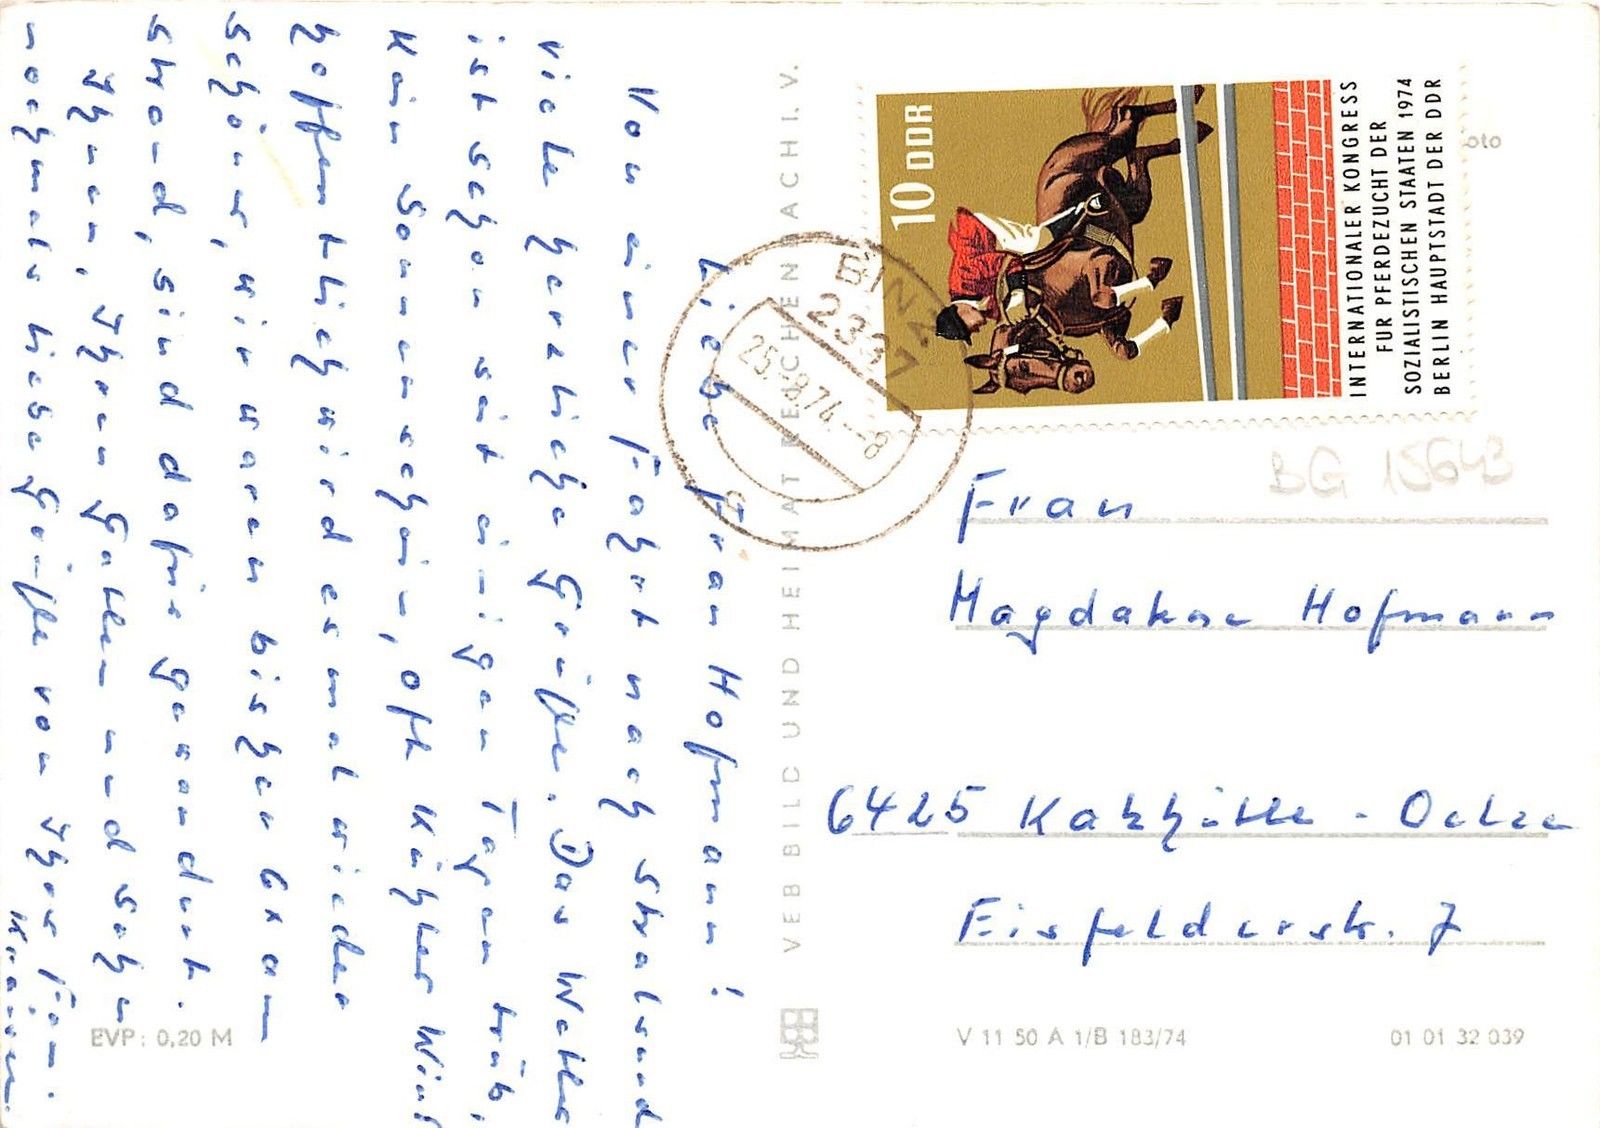 Liebe Frau Hofmann!
Von einer Fahrt nach Stralsund
viele herzliche Grüße. Das Wetter
ist schon seit einigen Tagen trüb,
kein Sonnenschein, oft kühler Wind
hoffentlich wird es mal wieder
schöner, wir waren bisher 6x am
Strand, sind dafür gewandert.
Ihnen, Ihrem Gatten und Sohn
nochmals liebe Grüße von Ihrer Fam.
VEB BILD UND HEIMAT REICHENBACH I. V.
10 DDR
INTERNATIONALER KONGRESS
FÜR PFERDEZUCHT DER
SOZIALISTISCHEN STAATEN 1974
BERLIN HAUPTSTADT DER DDR
oto
BINZ
2337
25.-8.74.--8
BG 15643
Frau
Magdalene Hofmann
6425 Katzhütte - Oelze
Eisfelderstr. 7
EVP: 0,20 M
V 11 50 A 1/B 183/74
01 01 32 039